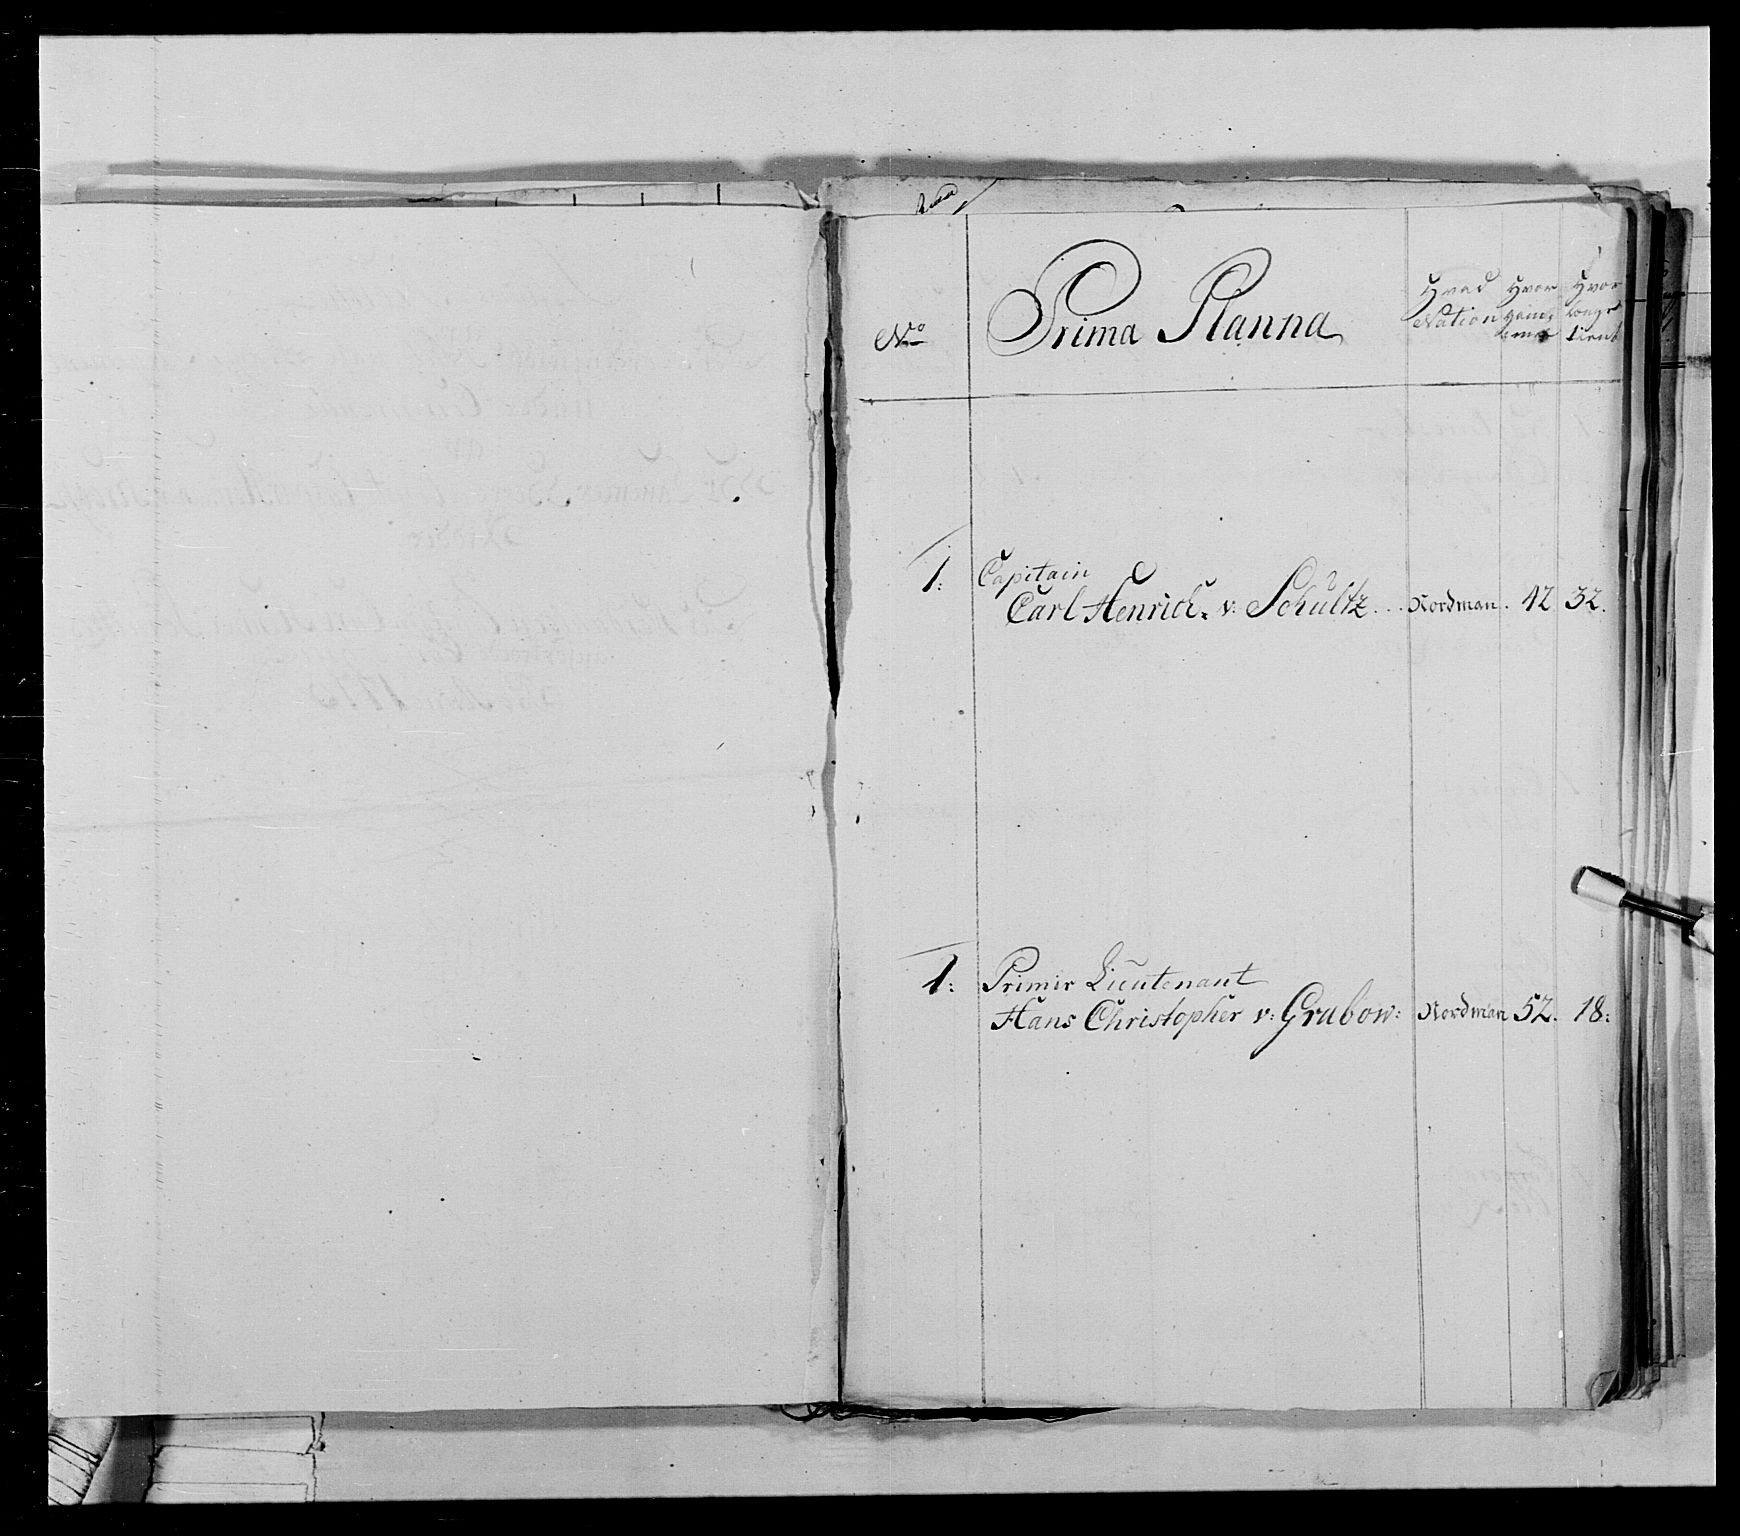 No
Prima Planna
Hvad Nation
Hvor
Hvor længe tient
1: Capitain
Carl Henrich v: Schultz. . . Nordman. 42 32.
1: Primir Lieutenant
Hans Christopher v: Grabow: Nordman 52. 18: